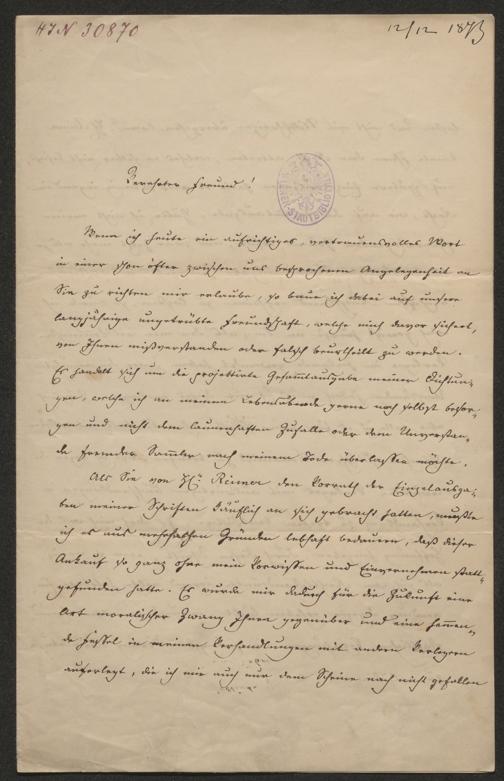 HIN 30870
12/12 1873
Verehrter Freund!
Wenn ich heute ein aufrichtiges, vertrauensvolles Wort
in einer schon öfter zwischen uns besprochenen Angelegenheit an
Sie zu richten mir erlaube, so baue ich dabei auf unsere
langjährige ungetrübte Freundschaft, welche mich davor sichert,
von Ihnen mißverstanden oder falsch beurtheilt zu werden.
Es handelt sich um die projektirte Gesammtausgabe meiner Dichtun-
gen, welche ich an meinem Lebensabende gerne noch selbst besor-
gen und nicht dem launenhaften Zufalle oder dem Unverstan-
de fremder Sammler nach meinem Tode überlassen möchte.
Als Sie von H: Reimer den Vorrath der Einzelausga-
ben meiner Schriften käuflich an sich gebracht hatten, mußte
ich es aus mehrfachen Gründen lebhaft bedauern, daß dieser
Ankauf so ganz ohne mein Vorwissen und Einvernehmen statt-
gefunden hatte. Es wurde mir dadurch für die Zukunft eine
Art moralischer Zwang Ihnen gegenüber und eine hemmen-
de Fessel in meinen Verhandlungen mit andern Verlegern
auferlegt, die ich mir auch nur dem Scheine nach nicht gefallen